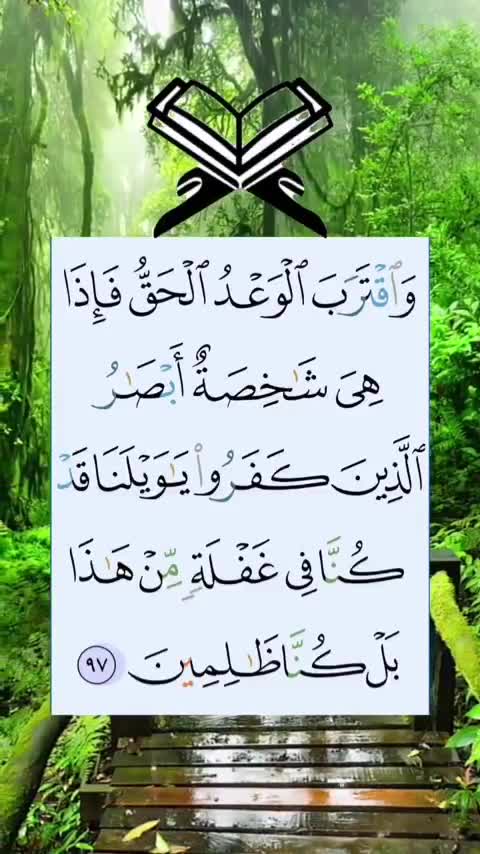 وَٱقْتَرَبَ ٱلْوَعْدُ ٱلْحَقُّ فَإِذَا
هِىَ شَـٰخِصَةٌ أَبْصَـٰرُ
ٱلَّذِينَ كَفَرُوا۟ يَـٰوَيْلَنَا قَدْ
كُنَّا فِى غَفْلَةٍ مِّنْ هَـٰذَا
بَلْ كُنَّا ظَـٰلِمِينَ ٩٧